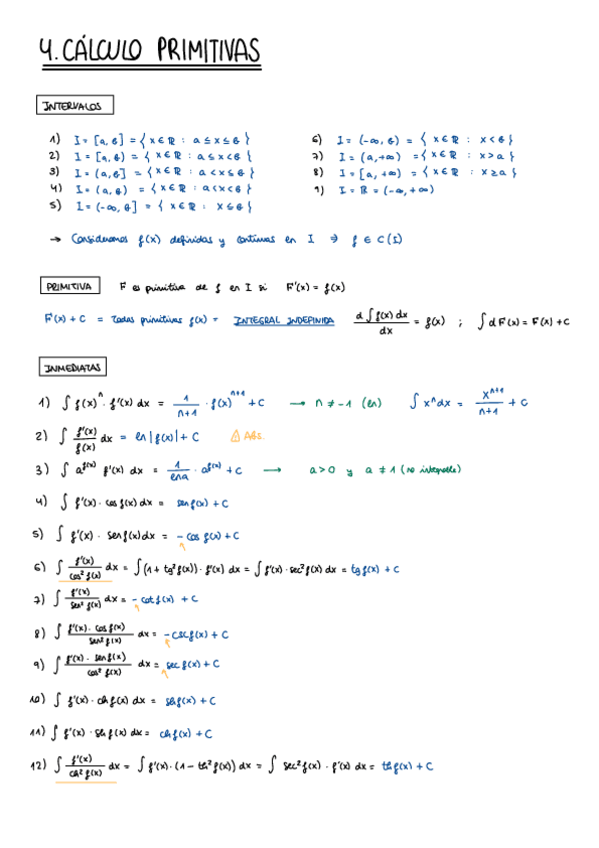 4. CÁLCULO PRIMITIVAS
INTERVALOS
1) I = [a, b] = { x ∈ ℝ : a ≤ x ≤ b }
2) I = [a, b) = { x ∈ ℝ : a ≤ x < b }
3) I = (a, b] = { x ∈ ℝ : a < x ≤ b }
4) I = (a, b) = { x ∈ ℝ : a < x < b }
5) I = (-∞, b] = { x ∈ ℝ : x ≤ b }
6) I = (-∞, b) = { x ∈ ℝ : x < b }
7) I = (a, +∞) = { x ∈ ℝ : x > a }
8) I = [a, +∞) = { x ∈ ℝ : x ≥ a }
9) I = ℝ = (-∞, +∞)
→ Consideramos f(x) definidas y continuas en I ⇒ f ∈ C(I)
PRIMITIVA F es primitiva de f en I si F'(x) = f(x)
F(x) + C = Todas primitivas f(x) = INTEGRAL INDEFINIDA d ∫ f(x) dx / dx = f(x) ; ∫ d F(x) = F(x) + C
INMEDIATAS
1) ∫ f(x)^n · f'(x) dx = 1/(n+1) · f(x)^(n+1) + C → n ≠ -1 (ln) ∫ x^n dx = x^(n+1)/(n+1) + C
2) ∫ f'(x)/f(x) dx = ln |f(x)| + C ⚠ Abs.
3) ∫ a^f(x) f'(x) dx = 1/lna · a^f(x) + C → a > 0 y a ≠ 1 (no integrable)
4) ∫ f'(x) · cos f(x) dx = sen f(x) + C
5) ∫ f'(x) · sen f(x) dx = - cos f(x) + C
6) ∫ f'(x)/cos² f(x) dx = ∫ (1 + tg² f(x)) · f'(x) dx = ∫ f'(x) · sec² f(x) dx = tg f(x) + C
7) ∫ f'(x)/sen² f(x) dx = - cot f(x) + C
8) ∫ f'(x) · cos f(x)/sen² f(x) dx = - csc f(x) + C
9) ∫ f'(x) · sen f(x)/cos² f(x) dx = sec f(x) + C
10) ∫ f'(x) · ch f(x) dx = sh f(x) + C
11) ∫ f'(x) · sh f(x) dx = ch f(x) + C
12) ∫ f'(x)/ch² f(x) dx = ∫ f'(x) · (1 - th² f(x)) dx = ∫ sec² f(x) · f'(x) dx = th f(x) + C